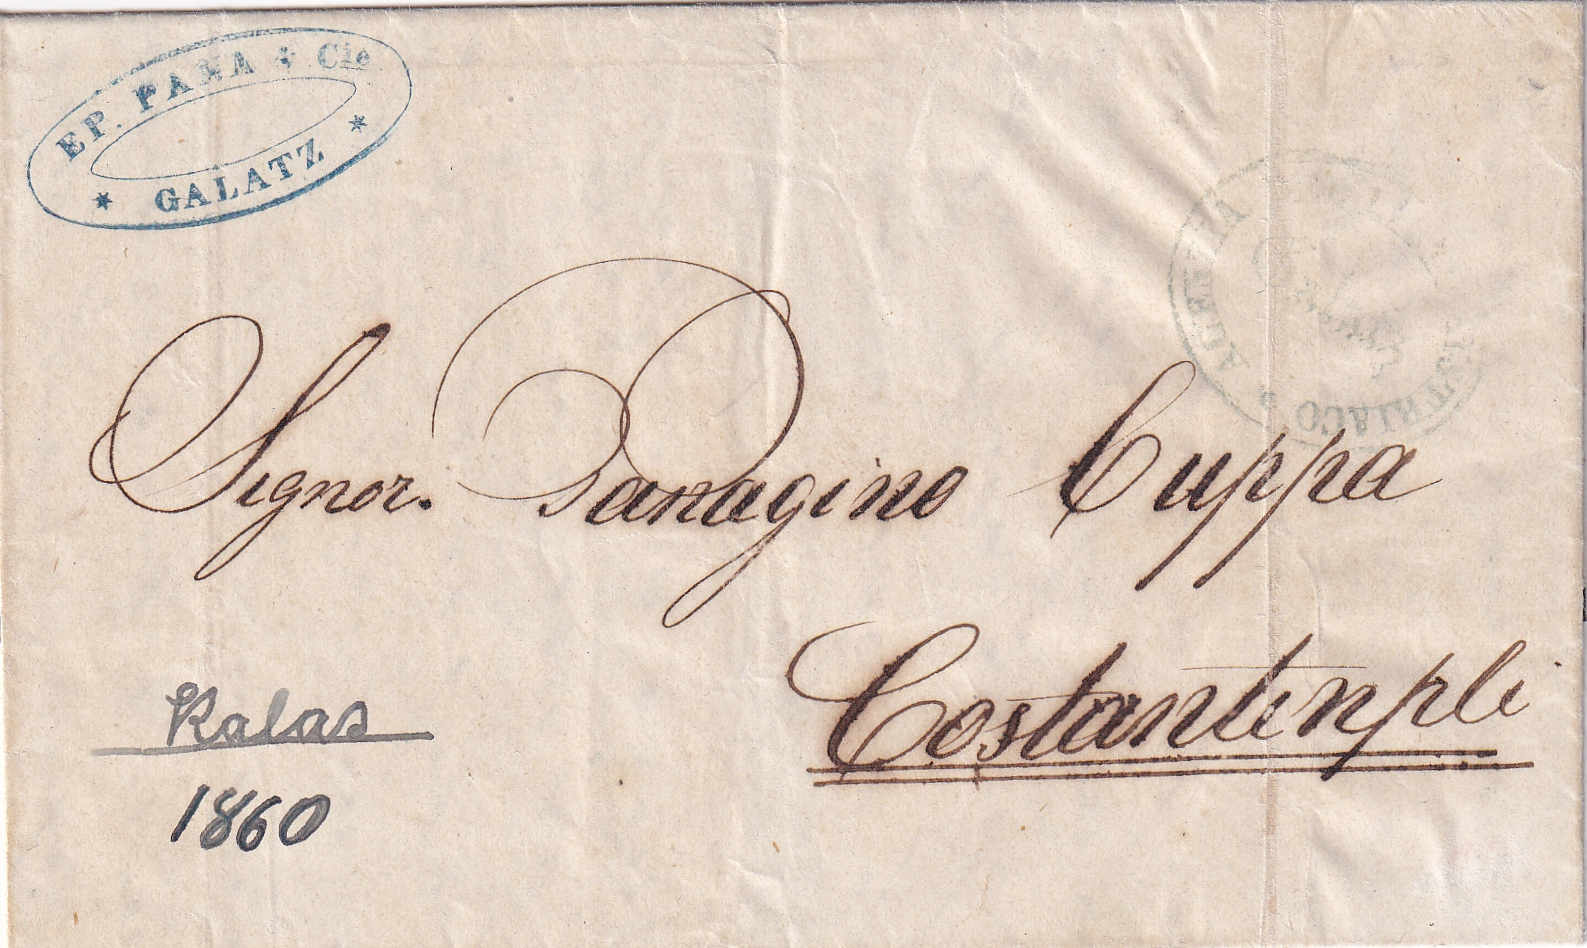 EP. PANA & Cie
GALATZ
AGENZIA
AUSTRIACO
Signor. Panagino Cuppa
Costantinpli
Kalas
1860